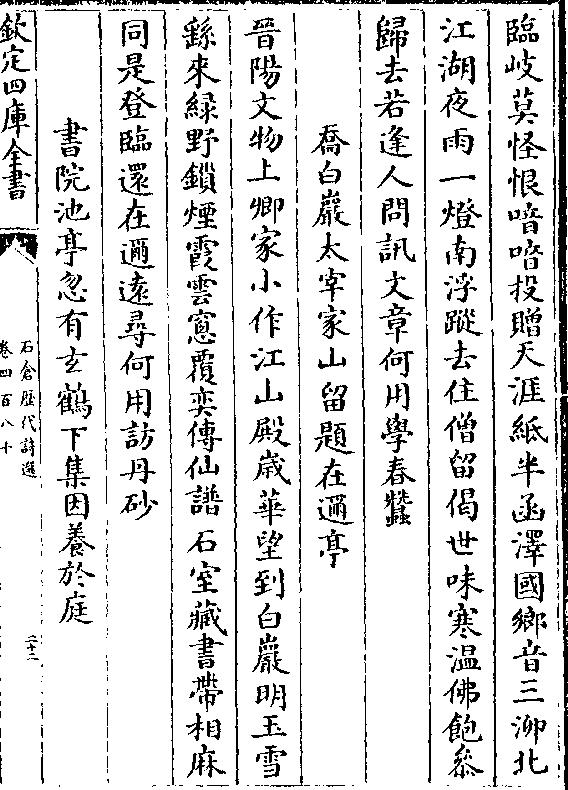 臨岐莫怪恨喑喑投贈天涯紙半函澤國鄉音三泖北
江湖夜雨一燈南浮蹤去住僧留偈世味寒温佛飽叅
歸去若逢人問訊文章何用學春蠶
喬白巖太宰家山留題在邇亭
晉陽文物上卿家小作江山殿嵗華望到白巖明玉雪
繇來緑野鎖煙霞雲窓覆奕傳仙譜石室藏書帶相麻
同是登臨還在邇遠尋何用訪丹砂
書院池亭忽有玄鶴下集因養於庭
欽定四庫全書
石倉歴代詩選
卷四百八十
二十二